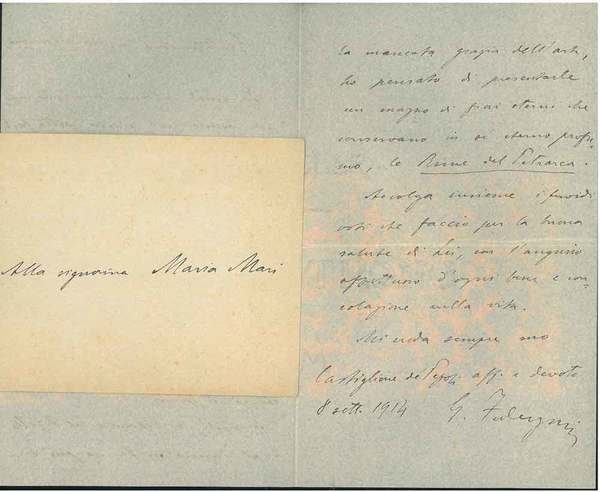 Alla signorina Maria Mari
la mancata grazia dell'arte,
ho pensato di presentarle
un mazzo di fiori eterni che
conservano in sé eterno profu-
mo, le Rime del Petrarca.
Accolga insieme i fervidi
voti che faccio per la buona
salute di Lei, con l'augurio
affettuoso d'ogni bene e con-
solazione nella vita.
Mi creda sempre suo
Castiglione de' Pepoli aff. e devoto
8 sett. 1914 G.